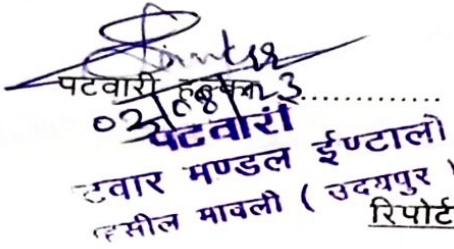 पटवारी हल्का ..................
03/08/23
पटवारी
टवार मण्डल ईण्टाली
हसील मावली ( उदयपुर )
रिपोर्ट